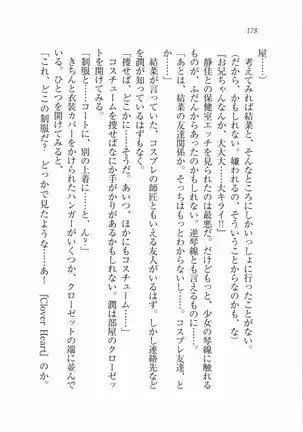 178
屋……）
　考えてみれば結菜と、そんなところにいっしょに行ったことがない。
（だから、かもしれない。嫌われるの、そういうことからなのかも、な）
『お兄ちゃんなんか、大大大……大キライ！』
　静佳との保健室エッチを見られたのは最悪だ。だけどもっと、少女の琴線に触れる
ものが、ふだんからあったのかもしれない。逆琴線とも言えるものに……。
「あとは、結菜の友達関係か。そっちはもっとわからないし……。コスプレ友達、と
か」
　結菜が言っていた、コスプレの師匠ともいえる友人がいるはず。しかし連絡先など
を潤が知っているはずもなく。
「捜せば、どこかに……そうだ。あいつ、ほかにもコスチューム……」
　コスチュームを捜せばなにか手がかりがあるかもしれない。潤は部屋のクローゼッ
トを開けてみる。
「制服と……コートに、別の上着に……と、ん？」
　きちんと衣装カバーをかけられたハンガーがいくつか、クローゼットの端に並んで
いる。ひとつを開けてみると、
「これ、どこの制服だ？　どっかで見たような……あ！　『Clover Heart』のか。